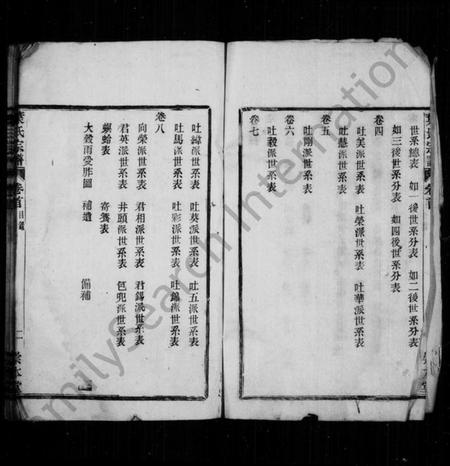 世系總表　如一後世系分表　如二後世系分表
如三後世系分表　如四後世系分表
卷四
吐美派世系表　吐榮派世系表　吐華派世系表
卷五
吐慧派世系表
卷六
吐剛派世系表
卷七
吐毅派世系表
吐綽派世系表　吐葵派世系表　吐五派世系表
吐馬派世系表　吐彩派世系表　吐錦派世系表
卷八
向榮派世系表　君相派世系表　君錫派世系表
君英派世系表　井頭派世系表　包兜派世系表
螟蛉表　寄養表
大穀雨受胙圖　補遺　備補
葉氏宗譜　卷首　目錄　二
FamilySearch International